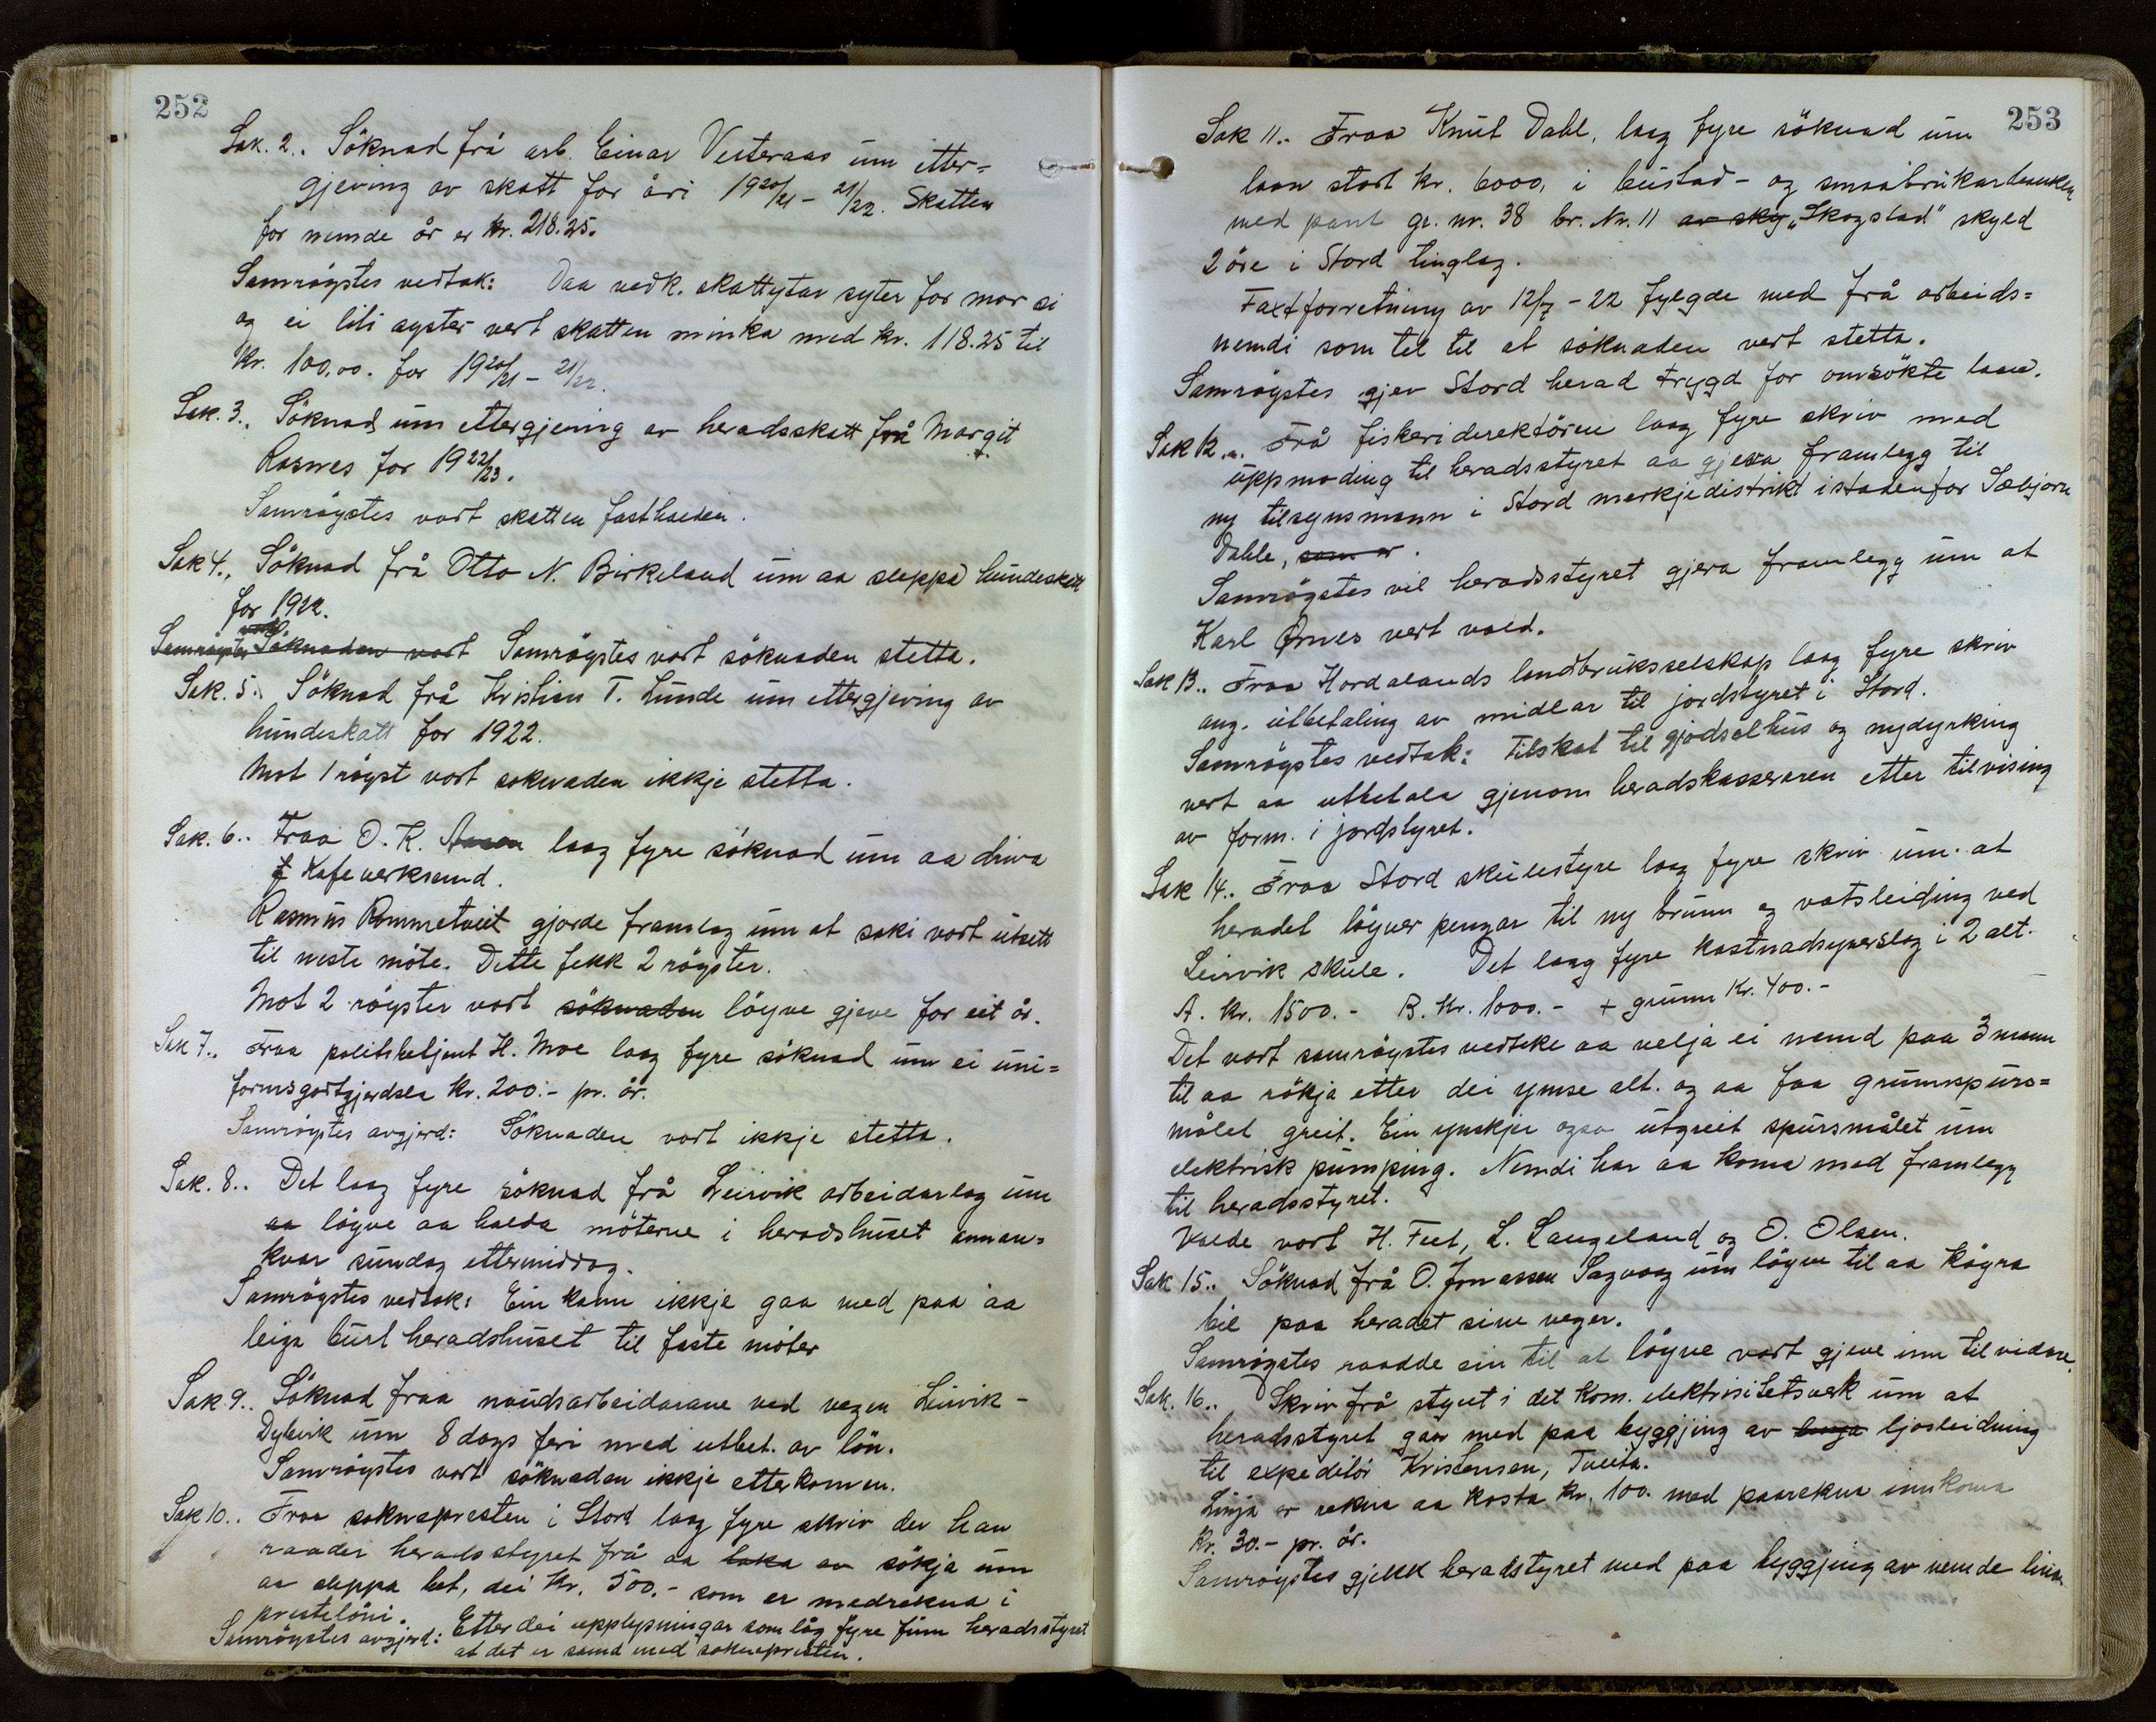 252
Sak. 2. Söknad frå arb. Einar Vesteraas um etter=
gjeving av skatt for åri 1920/21 - 21/22. Skatten
for nemde år er kr. 218.25.
Samröystes vedtak: Daa vedk. skattytar syter for mor si
og ei liti syster vert skatten minka med kr. 118.25 til
kr. 100,00. for 1920/21 - 21/22.
Sak. 3. Söknad um ettergjeving av heradsskatt frå Margit
Rosnes for 1922/23.
Samröystes vart skatten fasthalden.
Sak 4. Söknad frå Otto N. Birkeland um aa sleppa hundeskatt
for 1922.
Samröystes Söknaden vart Samröystes vart söknaden stetta.
Sak. 5. Söknad frå Kristian T. Lunde um ettergjeving av
hundeskatt for 1922.
Mot 1 röyst vart soknaden ikkje stetta.
Sak. 6. Fraa O. K. laag fyre söknad um aa driva
Kafeverksemd.
Rasmus Rommetveit gjorde framlag um at saki vart utsett
til neste möte. Dette fekk 2 röyster.
Mot 2 röyster vart söknaden löyve gjeve for eit år.
Sak 7. Fraa politibetjent H. Moe laag fyre söknad um ei uni=
formsgodtgjerdsla kr. 200.- pr. år.
Samröystes avgjerd: Söknaden vart ikkje stetta.
Sak. 8. Det laag fyre söknad frå Leirvik arbeidarlag um
aa löyve aa halda möterne i heradshuset annan=
kvar sundag ettermiddag.
Samröystes vedtak: Ein kann ikkje gaa med paa aa
leiga burt heradshuset til faste möter
Sak. 9. Söknad fraa naudsarbeidarane ved vegen Leirvik -
Dybvik um 8 dags feri med utbet. av lön.
Samröystes vart söknaden ikkje etterkomen.
Sak 10. Fraa soknepresten i Stord laag fyre skriv der han
raader heradsstyret frå aa taka av sökja um
aa sleppa bet. dei kr. 500.- som er medrekna i
prestelöni.
Samröystes avgjerd: Etter dei upplysningar som låg fyre finn heradsstyret
at det er samd med soknepresten.
253
Sak 11. Fraa Knut Dahl, laag fyre söknad um
laan stort kr. 6000, i bustad- og smaabrukarbanken
med pant gr. nr. 38 br. Nr. 11 av sky „Skogstad" skyld
2 öre i Stord tinglag.
Taxtforretning av 12/7 - 22 fylgde med frå arbeids=
nemdi som til til at söknaden vert stetta.
Samröystes gjev Stord herad trygd for omsökte laan.
Sak 12. Frå fiskeridirektören laag fyre skriv med
uppmoding til heradsstyret aa gjera framlegg til
ny tilsynsmann i Stord merkjedistrikt istadenfor Sæbjørn
Dahle, som er.
Samröystes vil heradsstyret gjera framlegg um at
Karl Ørnes vert vald.
Sak 13. Fraa Hordalands landbruksselskap laag fyre skriv
ang. utbetaling av midlar til jordstyret i Stord.
Samröystes vedtak: Tilskot til gjödselhus og nydyrking
vert aa utbetala gjenom heradskasseraren etter tilvising
av form. i jordstyret.
Sak 14. Fraa Stord skulestyre laag fyre skriv um at
heradet löyver pengar til ny brunn og vatsleiding ved
Leirvik skule. Det laag fyre kostnadsyverslag i 2 alt.
A. Kr. 1500.- B. Kr. 1000.- + grunn Kr. 400.-
Det vart samröystes vedteke aa velja ei nemd paa 3 mann
til aa rökja etter dei ymse alt. og aa faa grunnspurs=
målet greit. Ein ynskjer ogso utgreit spursmålet um
elektrisk pumping. Nemdi har aa koma med framlegg
til heradsstyret.
Valde vart H. Feet, L. Langeland og O. Olsen.
Sak 15. Söknad frå O. Jonassen Sagvaag um löyve til aa köyra
bil paa heradet sine veger.
Samröystes raadde ein til at löyve vart gjeve inn til vidare.
Sak. 16. Skriv frå styret i det kom. elektrisitetsverk um at
heradsstyret gaar med paa byggjing av ljosleidning
til expeditör Kristensen, Tveita.
Linja er rekna aa kosta kr. 100. med paarekna innkoma
Kr. 30.- pr. år.
Samröystes gjekk heradstyret med paa byggjing av nemde linja